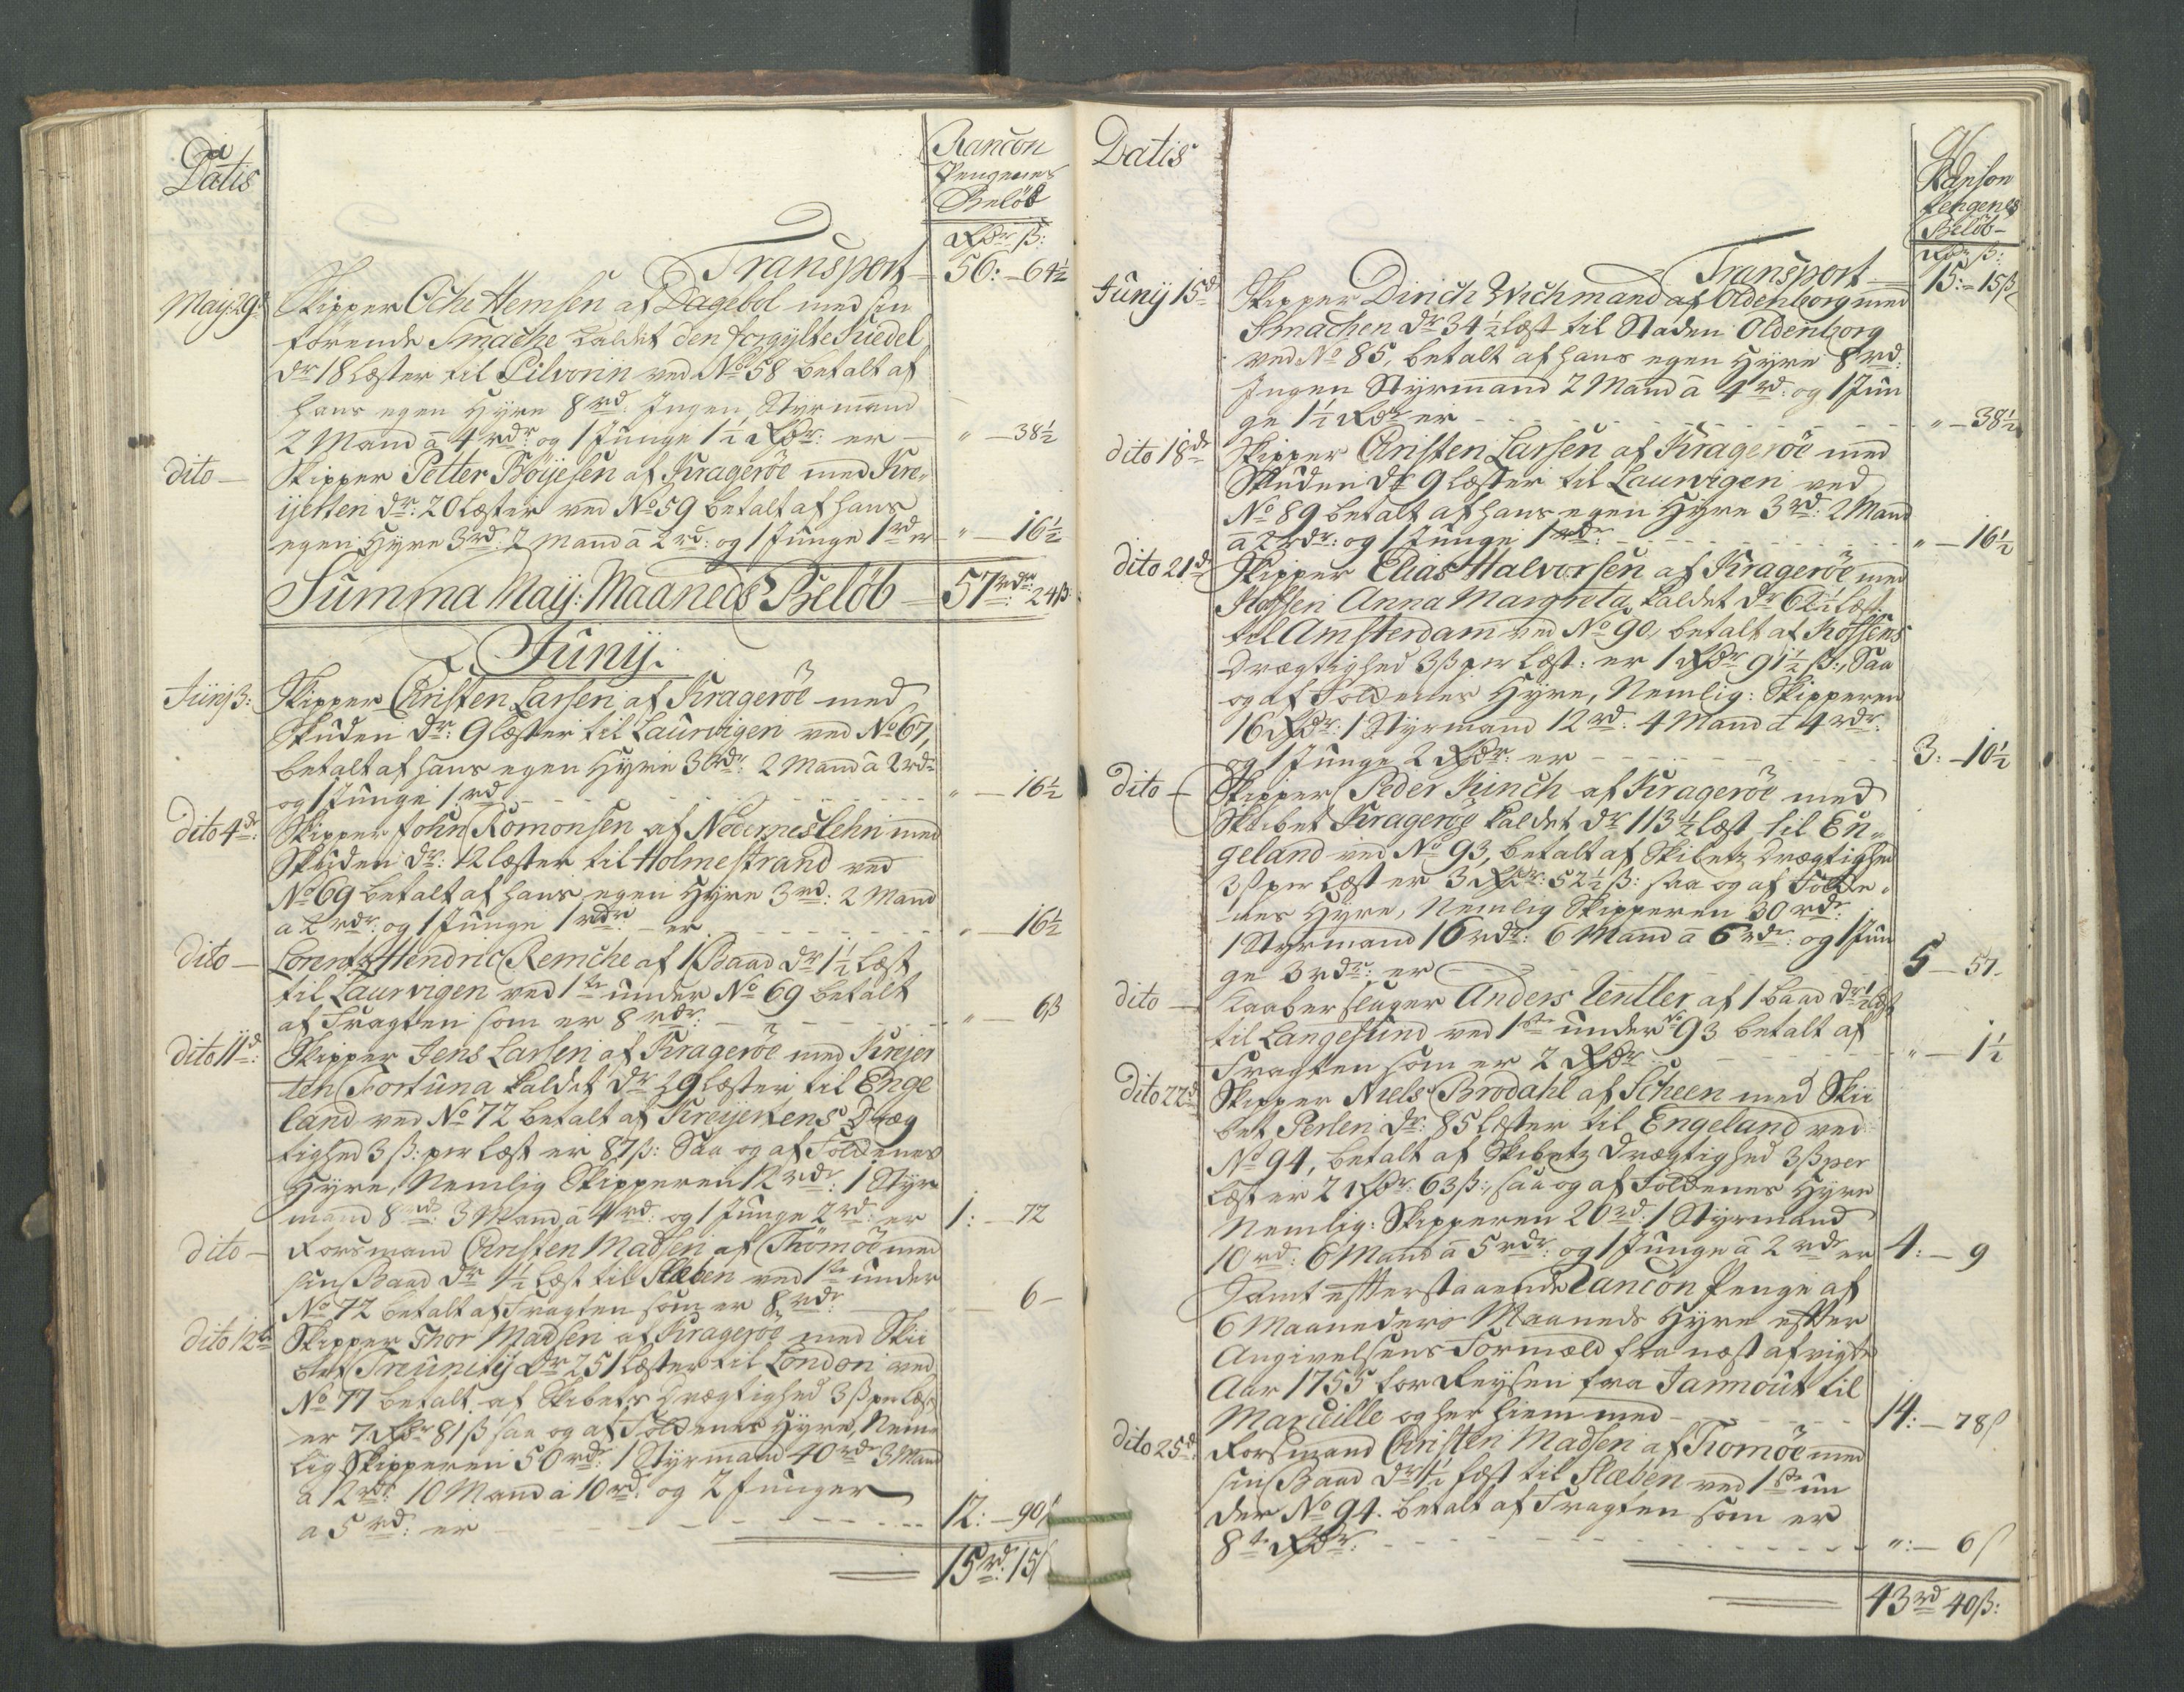 Datis
Rancon
Pengenes
Beløb
Rdr ß:
Transport — 56: — 64½
Maij 29: Skipper Oche Hemsen af Dagebøl med sin
førende Smache kaldet den forgylte Suedel
dr 18 Læster til Lilvorin ved No 58 betalt af
hans egen Hyre 8 rd: Ingen Styrmand
2 Mand â 4 rdr: og 1 Junge 1½ Rdr: er — " — 38½
dito — Skipper Petter Böÿesen af Kragerøe med Kre,,
ijerten dr: 20 Læster ved No 59 betalt af hans
egen Hyre 3 rd: 2 Mand â 2 rd: og 1 Junge 1 rd er — " — 16½
Summa Maij: Maaneds Beløb — 57 rdr: 24 ß
Junij.
Junj 3: Skipper Christen Larsen af Kragerøe med
Skuden dr: 9 Læster til Laurvigen ved No 67,
betalt af hans egen Hyre 3 rdr: 2 Mand â 2 rdr
og 1 Junge 1 rd — " — 16½
dito 4de: Skipper John Romonsen af Nedernes Lehn med
Skuden dr: 12 Læster til Holmestrand ved
No 69 betalt af hans egen Hyre 3 rd: 2 Mand
a 2 rdr: og 1 Junge 1 rdr — er — " — 16½
dito — Lorentz Hendric Remche af 1 Baad dr 1½ Læst
til Laurvigen ved 1te under No 69 betalt
af Fragten som er 8 rdr: — " — 6 ß
dito 11d: Skipper Jens Larsen af Kragerøe med Krejer
ten Fortuna kaldet dr 29 Læster til Enge
land ved No 72 betalt af Kreijertens Dræg
tighed 3 ß: per Læst er 87 ß: Saa og af Folckenes
Hyre, Nemlig Skipperen 12 rdr: 1 Styr
mand 8 rd: 3 Mand â 4 rd: og 1 Junge 2 rd: er 1: — 72
dito — Forsmand Christen Madsen af Thomöe med
sin Baad dr 1½ Læst til Slæben ved 1te under
No 72 betalt af Fragten som er 8 rdr 6 —
dito 12te Skipper Thor Madsen af Kragerøe med Skii
bet Treunitij dr 251 Læster til London ved
No 77 betalt af Skibets Drægtighed 3 ß per Læst
er 7 Rdr 81 ß saa og af Folckenes Hyre, Nem
lig Skipperen 50 rdr: 1 Styrmand 40 rdr 3 Mand
â 12 rdr: 10 Mand â 10 rd: og 2 Junger
a 5 rd: er — 12: — 90 ß
15 rd: 15 ß
Datis
91
Ranson
Pengenes
Beløb —
Rdr ß:
Transport — 15: — 15 ß
Junij 15d Skipper Dirich Wichmand af Oldenborg med
Smachen dr 34½ Læst til Staden Oldenborg
ved No 85, betalt af hans egen Hyre 8 rd:
Ingen Styrmand 2 Mand â 4 rd: og 1 Jun
ge 1½ Rdr er — " — 38½
dito 18de Skipper Christen Larsen af Kragerøe med
Skuden dr 9 Læster til Laurvigen ved
No 89 betalt af hans egen Hyre 3 rd: 2 Mand
â 2 rdr: og 1 Junge 1 rdr: — " — 16½
dito 21de Skipper Elias Halvorsen af Kragerøe med
Koffen Anna Margreta kaldet dr 62½ Læst
til Amsterdam ved No 90, betalt af Koffens
Drægtighed 3 ß per Læst: er 1 Rdr 91½ ß:, Saa
og af Folckenes Hyre, Nemlig: Skipperen
16 Rdr: 1 Styrmand 12 rd: 4 Mand â 4 rdr:
og 1 Junge 2 Rdr: er — 3: — 10½
dito — Skipper Peder Kinch af Kragerøe med
Skibet Kragerøe kaldet dr 113½ Læst til En,,
geland ved No 93, betalt af Skibetz Drægtighed
3 ß per Læst er 3 Rdr: 52½ ß: saa og af Folcke,,
nes Hyre, Nemlig Skipperen 30 rdr:
1 Styrmand 16 rdr: 6 Mand â 6 rdr: og 1 Jun
ge 3 rdr: er — 5 — 57.
dito — Kaaberslager Anders Tentler af 1 Baad dr ½ Læst
til Langesund ved 1te under No 93 betalt af
Fragten som er 2 Rdr — " — 1½
dito 22d Skipper Niels Brodahl af Scheen med Skii
bet Perlen dr: 85 Læster til Engeland ved
No 94, betalt af Skibetz Drægtighed 3 ß per
Læst er 2 Rdr: 63 ß:, saa og af Folckenes Hyre
Nemlig: Skipperen 20 rd: 1 Styrmand
10 rd: 6 Mand â 5 rdr: og 1 Junge â 2 rdr er 4: — 9
Samt efterstaaende Rancon Penge af
6 Maaneders Maaneds Hyre efter
Angivelsens Formæld fra næst afvigte
Aar 1755 for Reysen fra Jarmout til
Marcille og her hiem med — 14: — 78 ß
dito 25d: Forsmand Christen Madsen af Tromöe med
sin Baad dr 1½ Læst til Slæben ved 1te un
der No 94. betalt af Fragten som er
8te Rdr: — ": — 6 ß
43 rd 40 ß: